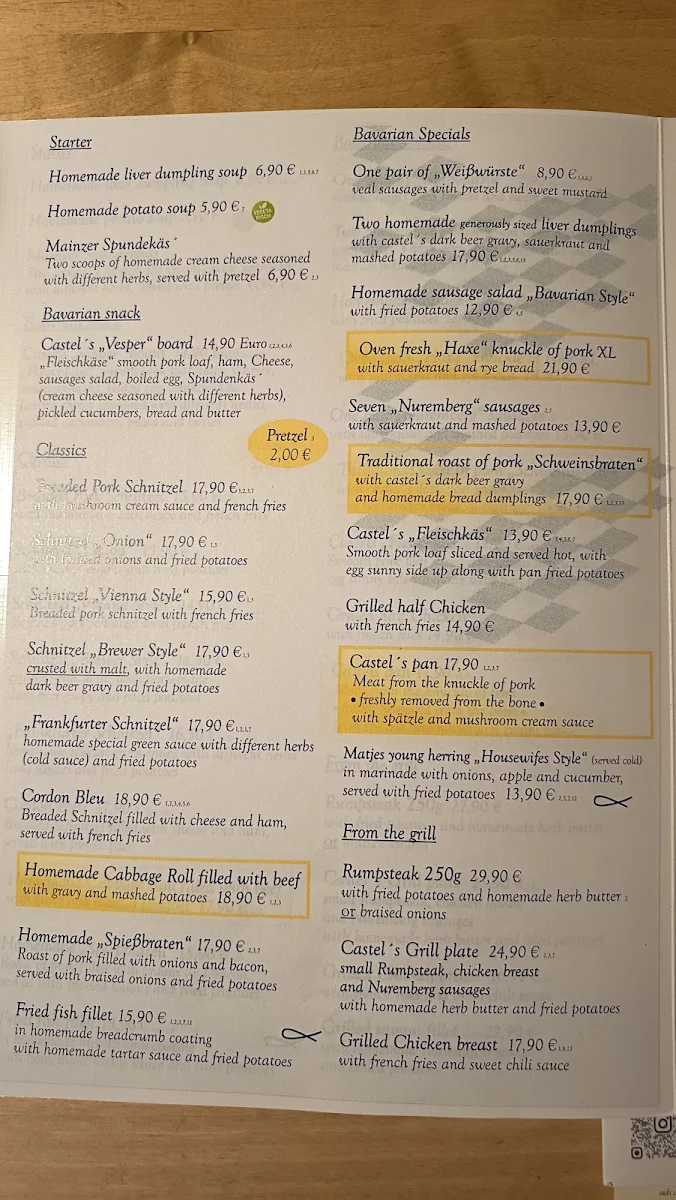 Starter
Homemade liver dumpling soup 6,90 €
Homemade potato soup 5,90 €
VEGETA
RISCH
Mainzer Spundekäs´
Two scoops of homemade cream cheese seasoned
with different herbs, served with pretzel 6,90 €
Bavarian snack
Castel´s „Vesper“ board 14,90 Euro
„Fleischkäse“ smooth pork loaf, ham, Cheese,
sausages salad, boiled egg, Spundenkäs´
(cream cheese seasoned with different herbs),
pickled cucumbers, bread and butter
Pretzel
2,00 €
Classics
Breaded Pork Schnitzel 17,90 €
with mushroom cream sauce and french fries
Schnitzel „Onion“ 17,90 €
with braised onions and fried potatoes
Schnitzel „Vienna Style“ 15,90 €
Breaded pork schnitzel with french fries
Schnitzel „Brewer Style“ 17,90 €
crusted with malt, with homemade
dark beer gravy and fried potatoes
„Frankfurter Schnitzel“ 17,90 €
homemade special green sauce with different herbs
(cold sauce) and fried potatoes
Cordon Bleu 18,90 €
Breaded Schnitzel filled with cheese and ham,
served with french fries
Homemade Cabbage Roll filled with beef
with gravy and mashed potatoes 18,90 €
Homemade „Spießbraten“ 17,90 €
Roast of pork filled with onions and bacon,
served with braised onions and fried potatoes
Fried fish fillet 15,90 €
in homemade breadcrumb coating
with homemade tartar sauce and fried potatoes
Bavarian Specials
One pair of „Weißwürste“ 8,90 €
veal sausages with pretzel and sweet mustard
Two homemade generously sized liver dumplings
with castel´s dark beer gravy, sauerkraut and
mashed potatoes 17,90 €
Homemade sausage salad „Bavarian Style“
with fried potatoes 12,90 €
Oven fresh „Haxe“ knuckle of pork XL
with sauerkraut and rye bread 21,90 €
Seven „Nuremberg“ sausages
with sauerkraut and mashed potatoes 13,90 €
Traditional roast of pork „Schweinsbraten“
with castel´s dark beer gravy
and homemade bread dumplings 17,90 €
Castel´s „Fleischkäs“ 13,90 €
Smooth pork loaf sliced and served hot, with
egg sunny side up along with pan fried potatoes
Grilled half Chicken
with french fries 14,90 €
Castel´s pan 17,90
Meat from the knuckle of pork
• freshly removed from the bone •
with spätzle and mushroom cream sauce
Matjes young herring „Housewifes Style“ (served cold)
in marinade with onions, apple and cucumber,
served with fried potatoes 13,90 €
From the grill
Rumpsteak 250g 29,90 €
with fried potatoes and homemade herb butter
or braised onions
Castel´s Grill plate 24,90 €
small Rumpsteak, chicken breast
and Nuremberg sausages
with homemade herb butter and fried potatoes
Grilled Chicken breast 17,90 €
with french fries and sweet chili sauce